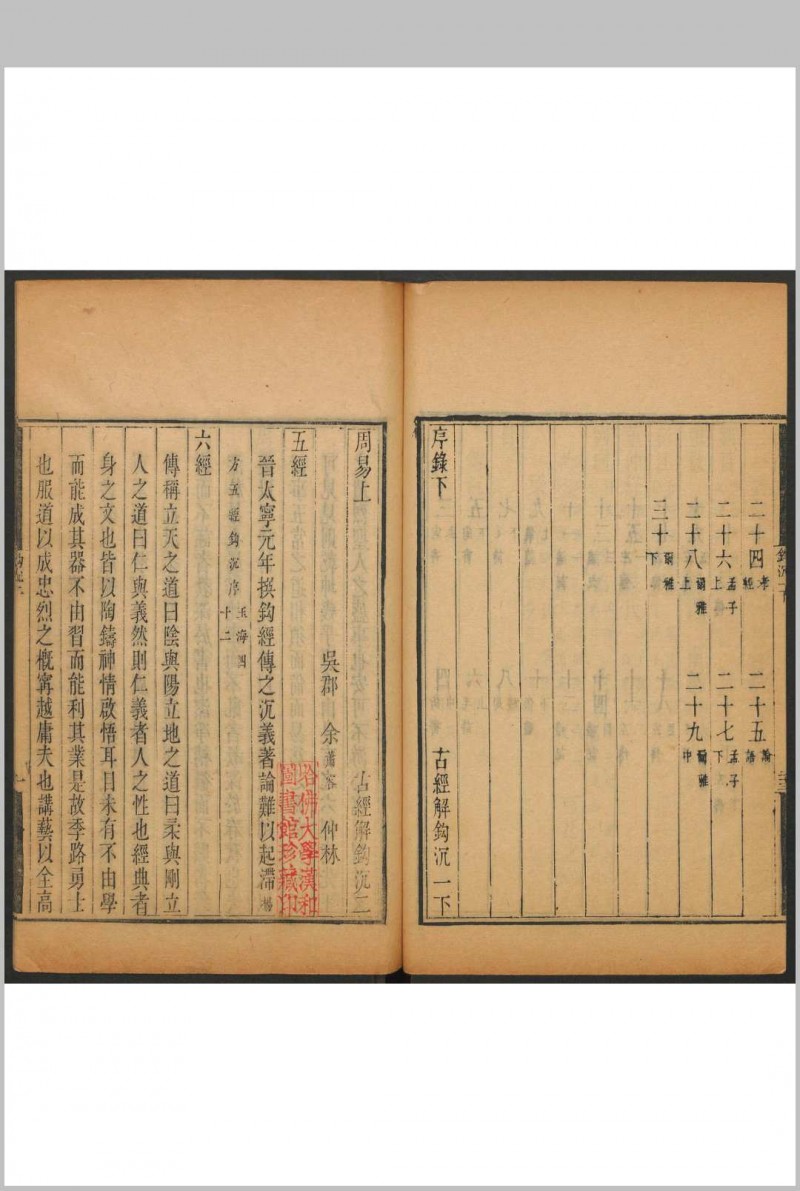 二十四孝經 二十五論語
二十六孟子上 二十七孟子下
二十八爾雅上 二十九爾雅中
三十爾雅下
序錄下 古經解鈎沉一下
周易上 古經解鈎沉二
吳郡 余蕭客 仲林
五經
晉太寧元年撰鈎經傳之沉義著論難以起滯楊
方五經鈎沉序玉海四十二
六經
傳稱立天之道曰陰與陽立地之道曰柔與剛立
人之道曰仁與義然則仁義者人之性也經典者
身之文也皆以陶鑄神情啟悟耳目未有不由學
而能成其器不由習而能利其業是故季路勇士
也服道以成忠烈之概寗越庸夫也講藝以全高
哈佛大學漢和
圖書館珍藏印